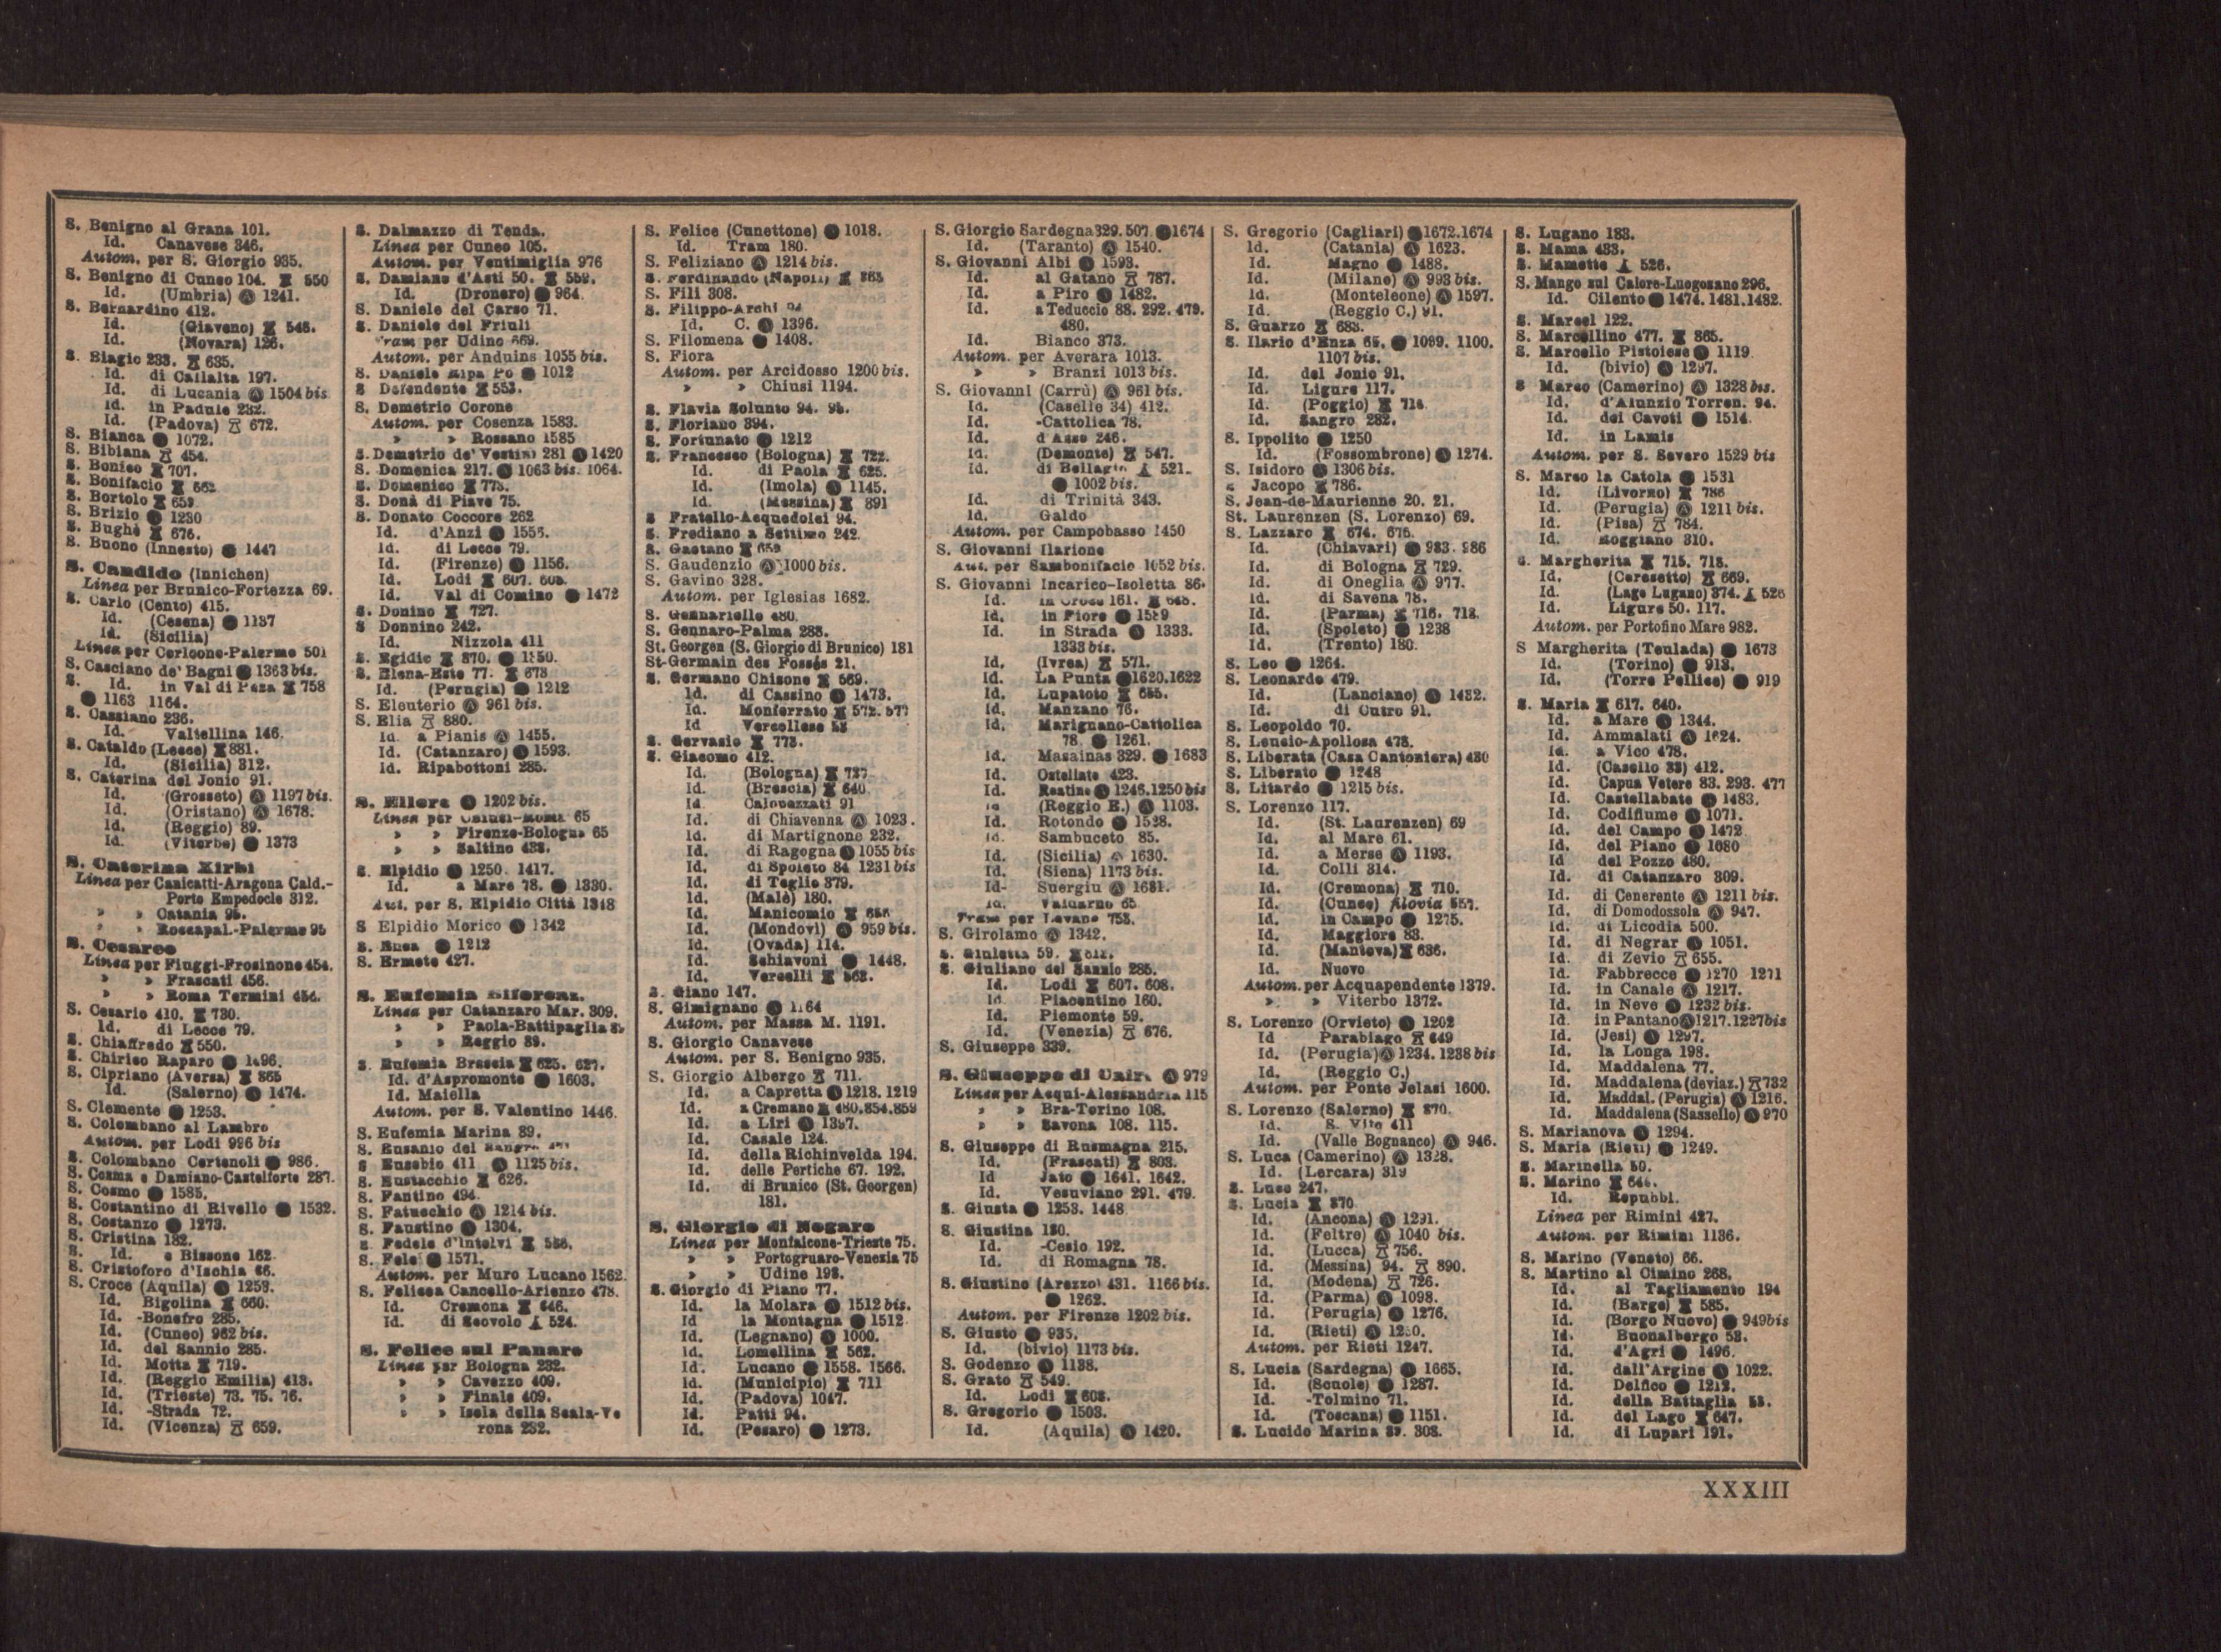 S. Benigno al Grana 101.
Id. Canavese 346.
Autom. per S. Giorgio 935.
S. Benigno di Cuneo 104. 550
Id. (Umbria) Ⓐ 1241.
S. Bernardino 412.
Id. (Giaveno) 546.
Id. (Novara) 126.
S. Biagio 233. 635.
Id. di Callalta 197.
Id. di Lucania Ⓐ 1504 bis
Id. in Padule 232.
Id. (Padova) 672.
S. Bianca ● 1072.
S. Bibiana 454.
S. Bonico 707.
S. Bonifacio 662
S. Bortolo 659.
S. Brizio ● 1230
S. Bughè 676.
S. Buono (Innesto) ● 1447
S. Candido (Innichen)
Linea per Brunico-Fortezza 69.
S. Carlo (Cento) 415.
Id. (Cesena) ● 1137
Id. (Sicilia)
Linea per Corleone-Palermo 501
S. Casciano de' Bagni ● 1363 bis.
S. Id. in Val di Pesa 758
● 1163 1164.
S. Cassiano 236.
Id. Valtellina 146.
S. Cataldo (Lecce) 881.
Id. (Sicilia) 312.
S. Caterina del Jonio 91.
Id. (Grosseto) Ⓐ 1197 bis.
Id. (Oristano) Ⓐ 1678.
Id. (Reggio) 89.
Id. (Viterbo) ● 1373
S. Caterina Xirbi
Linea per Canicatti-Aragona Cald.-
Porto Empedocle 312.
» » Catania 95.
» » Roccapal.-Palermo 95
S. Cesareo
Linea per Fiuggi-Frosinone 454.
» » Frascati 456.
» » Roma Termini 454.
S. Cesario 410. 730.
Id. di Lecce 79.
S. Chiaffredo 550.
S. Chirico Raparo ● 1496.
S. Cipriano (Aversa) 865
Id. (Salerno) ● 1474.
S. Clemente ● 1253.
S. Colombano al Lambro
Autom. per Lodi 996 bis
S. Colombano Certenoli ● 986.
S. Cosma e Damiano-Castelforte 287.
S. Cosmo ● 1585.
S. Costantino di Rivello ● 1532.
S. Costanzo ● 1273.
S. Cristina 182.
S. Id. e Bissone 162
S. Cristoforo d'Ischia 66.
S. Croce (Aquila) ● 1253.
Id. Bigolina 660.
Id. -Bonefro 285.
Id. (Cuneo) 962 bis.
Id. del Sannio 285.
Id. Motta 719.
Id. (Reggio Emilia) 413.
Id. (Trieste) 73. 75. 76.
Id. -Strada 72.
Id. (Vicenza) 659.
S. Dalmazzo di Tenda.
Linea per Cuneo 105.
Autom. per Ventimiglia 976
S. Damiano d'Asti 50. 559.
Id. (Dronero) ● 964.
S. Daniele del Carso 71.
S. Daniele del Friuli
Tram per Udine 669.
Autom. per Anduins 1055 bis.
S. Daniele Ripa Po ● 1012
S Defendente 553.
S. Demetrio Corone
Autom. per Cosenza 1583.
» » Rossano 1585
S. Demetrio de' Vestini 281 ● 1420
S. Domenica 217. ● 1063 bis. 1064.
S. Domenico 773.
S. Donà di Piave 75.
S. Donato Coccore 262
Id. d'Anzi ● 1556.
Id. di Lecce 79.
Id. (Firenze) ● 1156.
Id. Lodi 607. 608.
Id. Val di Comino ● 1472
S. Donino 727.
S Donnino 242.
Id. Nizzola 411
S. Egidio 870. ●
S. Elena-Este 77. 673
Id. (Perugia) ● 1212
S. Eleuterio Ⓐ 961 bis.
S. Elia 880.
Id. a Pianis Ⓐ 1455.
Id. (Catanzaro) ● 1593.
Id. Ripabottoni 285.
S. Ellero ● 1202 bis.
Linea per Chiusi-Roma 65
» » Firenze-Bologna 65
» » Saltino 433.
S. Elpidio ● 1250. 1417.
Id. a Mare 78. ● 1330.
Aut. per S. Elpidio Città 1318
S Elpidio Morico ● 1342
S. Enea ● 1212
S. Ermete 427.
S. Eufemia Biforcaz.
Linea per Catanzaro Mar. 309.
» » Paola-Battipaglia
» » Reggio 89.
S. Eufemia Brescia 625. 627.
Id. d'Aspromonte ● 1603.
Id. Maiella
Autom. per S. Valentino 1446.
S. Eufemia Marina 89.
S. Eusanio del Sangro
S Eusebio 411 Ⓐ 1125 bis.
S. Eustacchio 626.
S. Fantino 494.
S. Fatucchio Ⓐ 1214 bis.
S. Faustino ● 1304.
S Fedele d'Intelvi 586.
S. Fele ● 1571.
Autom. per Muro Lucano 1562.
S. Felicea Cancello-Arienzo 478.
Id. Cremona 646.
Id. di Scovolo 524.
S. Felice sul Panaro
Linea per Bologna 232.
» » Cavezzo 409.
» » Finale 409.
» » Isola della Scala-Ve
rona 232.
S. Felice (Cunettone) ● 1018.
Id. Tram 180.
S. Feliziano Ⓐ 1214 bis.
S. Ferdinando (Napoli) 863
S. Fili 308.
S. Filippo-Archi 94
Id. C. Ⓐ 1396.
S. Filomena ● 1408.
S. Fiora
Autom. per Arcidosso 1200 bis.
» » Chiusi 1194.
S. Flavia Solunto 94. 95.
S. Floriano 394.
S. Fortunato ● 1212
S. Francesco (Bologna) 722.
Id. di Paola 625.
Id. (Imola) ● 1145.
Id. (Messina) 891
S Fratello-Acquedolci 94.
S. Frediano a Settimo 242.
S. Gaetano 659
S. Gaudenzio Ⓐ 1000 bis.
S. Gavino 328.
Autom. per Iglesias 1682.
S. Gennariello 480.
S. Gennaro-Palma 288.
St. Georgen (S. Giorgio di Brunico) 181
St-Germain des Fossés 21.
S. Germano Chisone 569.
Id. di Cassino ● 1473.
Id. Monferrato 572. 577
Id Vercellese 53
S. Gervasio 773.
S. Giacomo 412.
Id. (Bologna) 727
Id. (Brescia) 640.
Id. Calopezzati 91
Id. di Chiavenna Ⓐ 1023.
Id. di Martignone 232.
Id. di Ragogna ● 1055 bis
Id. di Spoleto 84 1231 bis
Id. di Teglio 379.
Id. (Malè) 180.
Id. Manicomio 656
Id. (Mondovì) Ⓐ 959 bis.
Id. (Ovada) 114.
Id. Schiavoni ● 1448.
Id. Vercelli 563.
S. Giano 147.
S. Gimignano ● 1164
Autom. per Massa M. 1191.
S. Giorgio Canavese
Autom. per S. Benigno 935.
S. Giorgio Albergo 711.
Id. a Capretta ● 1218. 1219
Id. a Cremano 480.854.859
Id. a Liri Ⓐ 1397.
Id. Casale 124.
Id. della Richinvelda 194.
Id. delle Pertiche 67. 192.
Id. di Brunico (St. Georgen)
181.
S. Giorgio di Nogaro
Linea per Monfalcone-Trieste 75.
» » Portogruaro-Venezia 75
» » Udine 198.
S. Giorgio di Piano 77.
Id. la Molara ● 1512 bis.
Id la Montagna ● 1512
Id. (Legnano) Ⓐ 1000.
Id. Lomellina 562.
Id. Lucano ● 1558. 1566.
Id. (Municipio) 711
Id. (Padova) 1047.
Id. Patti 94.
Id. (Pesaro) ● 1273.
S. Giorgio Sardegna 329.507. ● 1674
Id. (Taranto) Ⓐ 1540.
S. Giovanni Albi ● 1593.
Id. al Gatano 787.
Id. a Piro ● 1482.
Id. a Teduccio 88. 292. 479.
480.
Id. Bianco 373.
Autom. per Averara 1013.
» » Branzi 1013 bis.
S. Giovanni (Carrù) Ⓐ 961 bis.
Id. (Casello 34) 412.
Id. -Cattolica 78.
Id. d'Asso 246.
Id. (Demonte) 547.
Id. di Bellagio 521.
● 1002 bis.
Id. di Trinità 343.
Id. Galdo
Autom. per Campobasso 1450
S. Giovanni Ilarione
Aut. per Sambonifacio 1052 bis.
S. Giovanni Incarico-Isoletta 86.
Id. in Croce 161. 648.
Id. in Fiore ● 1589
Id. in Strada Ⓐ 1333.
1333 bis.
Id. (Ivrea) 571.
Id. La Punta ● 1620.1622
Id. Lupatoto 655.
Id. Manzano 76.
Id. Marignano-Cattolica
78. ● 1261.
Id. Masainas 329. ● 1683
Id. Ostellato 423.
Id. Reatino ● 1246.1250 bis
Id (Reggio E.) Ⓐ 1103.
Id. Rotondo ● 1528.
Id. Sambuceto 85.
Id. (Sicilia) Ⓐ 1630.
Id. (Siena) 1173 bis.
Id- Suergiu Ⓐ 1681.
Id. Valdarno 65
Tram per Levane 753.
S. Girolamo Ⓐ 1342.
S. Giuletta 59.
S. Giuliano del Sannio 285.
Id. Lodi 607. 608.
Id. Piacentino 160.
Id. Piemonte 59.
Id. (Venezia) 676.
S. Giuseppe 339.
S. Giuseppe di Cairo Ⓐ 979
Linea per Acqui-Alessandria 115
» » Bra-Torino 108.
» » Savona 108. 115.
S. Giuseppe di Rusmagna 215.
Id. (Frascati) 803.
Id Jato ● 1641. 1642.
Id. Vesuviano 291. 479.
S. Giusta ● 1253. 1448
S. Giustina 180.
Id. -Cesio 192.
Id. di Romagna 78.
S. Giustino (Arezzo) 431. 1166 bis.
● 1262.
Autom. per Firenze 1202 bis.
S. Giusto ● 935.
Id. (bivio) 1173 bis.
S. Godenzo ● 1138.
S. Grato 549.
Id. Lodi 608.
S. Gregorio ● 1503.
Id. (Aquila) Ⓐ 1420.
S. Gregorio (Cagliari) ● 1672.1674
Id. (Catania) Ⓐ 1623.
Id. Magno ● 1488.
Id. (Milano) Ⓐ 993 bis.
Id. (Monteleone) Ⓐ 1597.
Id. (Reggio C.) 91.
S. Guarzo 683.
S. Ilario d'Enza 65. ● 1099. 1100.
1107 bis.
Id. del Jonio 91.
Id. Ligure 117.
Id. (Poggio) 716
Id. Sangro 282.
S. Ippolito ● 1250
Id. (Fossombrone) Ⓐ 1274.
S. Isidoro ● 1306 bis.
S Jacopo 786.
S. Jean-de-Maurienne 20. 21.
St. Laurenzen (S. Lorenzo) 69.
S. Lazzaro 674. 675.
Id. (Chiavari) ● 983. 986
Id. di Bologna 729.
Id. di Oneglia Ⓐ 977.
Id. di Savena 78.
Id. (Parma) 716. 718.
Id. (Spoleto) ● 1238
Id. (Trento) 180.
S. Leo ● 1264.
S. Leonardo 479.
Id. (Lanciano) Ⓐ 1432.
Id. di Cutro 91.
S. Leopoldo 70.
S. Leucio-Apollosa 478.
S. Liberata (Casa Cantoniera) 430
S. Liberato ● 1248
S. Litardo ● 1215 bis.
S. Lorenzo 117.
Id. (St. Laurenzen) 69
Id. al Mare 61.
Id. a Merse Ⓐ 1193.
Id. Colli 314.
Id. (Cremona) 710.
Id. (Cuneo) filovia 557.
Id. in Campo ● 1275.
Id. Maggiore 83.
Id. (Mantova) 636.
Id. Nuovo
Autom. per Acquapendente 1379.
» » Viterbo 1372.
S. Lorenzo (Orvieto) ● 1202
Id Parabiago 649
Id. (Perugia) Ⓐ 1234. 1238 bis
Id. (Reggio C.)
Autom. per Ponte Jelasi 1600.
S. Lorenzo (Salerno) 870.
Id. S. Vito 411
Id. (Valle Bognanco) Ⓐ 946.
S. Luca (Camerino) Ⓐ 1328.
Id. (Lercara) 319
S. Luce 247.
S. Lucia 870
Id. (Ancona) Ⓐ 1291.
Id. (Feltre) Ⓐ 1040 bis.
Id. (Lucca) 756.
Id. (Messina) 94. 890.
Id. (Modena) 726.
Id. (Parma) Ⓐ 1098.
Id. (Perugia) ● 1276.
Id. (Rieti) Ⓐ
Autom. per Rieti 1247.
S. Lucia (Sardegna) ● 1665.
Id. (Scuole) ● 1287.
Id. -Tolmino 71.
Id. (Toscana) ● 1151.
S. Lucido Marina 89. 308.
S. Lugano 183.
S. Mama 433.
S. Mamette 526.
S. Mango sul Calore-Luogosano 296.
Id. Cilento ● 1474.1481.1482.
S. Marcel 122.
S. Marcellino 477. 865.
S. Marcello Pistoiese ● 1119
Id. (bivio) Ⓐ 1297.
S Marco (Camerino) Ⓐ 1328 bis.
Id. d'Alunzio Torren. 94.
Id. dei Cavoti ● 1514.
Id. in Lamis
Autom. per S. Severo 1529 bis
S. Marco la Catola ● 1531
Id. (Livorno) 786
Id. (Perugia) Ⓐ 1211 bis.
Id. (Pisa) 784.
Id. Roggiano 310.
S. Margherita 715. 718.
Id. (Caresetto) 669.
Id. (Lago Lugano) 374. 526
Id. Ligure 50. 117.
Autom. per Portofino Mare 982.
S Margherita (Teulada) ● 1673
Id. (Torino) ● 913.
Id. (Torre Pellice) ● 919
S. Maria 617. 640.
Id. a Mare ● 1344.
Id. Ammalati Ⓐ 1624.
Id. a Vico 478.
Id. (Casello 33) 412.
Id. Capua Vetere 83. 293. 477
Id. Castellabate ● 1483.
Id. Codifiume Ⓐ 1071.
Id. del Campo ● 1472
Id. del Piano ● 1080
Id del Pozzo 480.
Id. di Catanzaro 309.
Id. di Cenerente Ⓐ 1211 bis.
Id. di Domodossola Ⓐ 947.
Id. di Licodia 500.
Id. di Negrar ● 1051.
Id. di Zevio 655.
Id. Fabbrecce ● 1270 1271
Id. in Canale Ⓐ 1217.
Id. in Neve ● 1232 bis.
Id in Pantano Ⓐ 1217.1227 bis
Id. (Jesi) Ⓐ 1297.
Id. la Longa 198.
Id. Maddalena 77.
Id. Maddalena (deviaz.) 732
Id. Maddal. (Perugia) Ⓐ 1216.
Id. Maddalena (Sassello) Ⓐ 970
S. Marianova Ⓐ 1294.
S. Maria (Rieti) ● 1249.
S. Marinella 50.
S. Marino 646.
Id. Repubbl.
Linea per Rimini 427.
Autom. per Rimini 1136.
S. Marino (Veneto) 66.
S. Martino al Cimino 268.
Id. al Tagliamento 194
Id. (Barge) 585.
Id. (Borgo Nuovo) ● 949 bis
Id. Buonalbergo 53.
Id. d'Agri ● 1496.
Id. dall'Argine ● 1022.
Id. Delfico ● 1212.
Id. della Battaglia 53.
Id. del Lago 647.
Id. di Lupari 191.
XXXIII